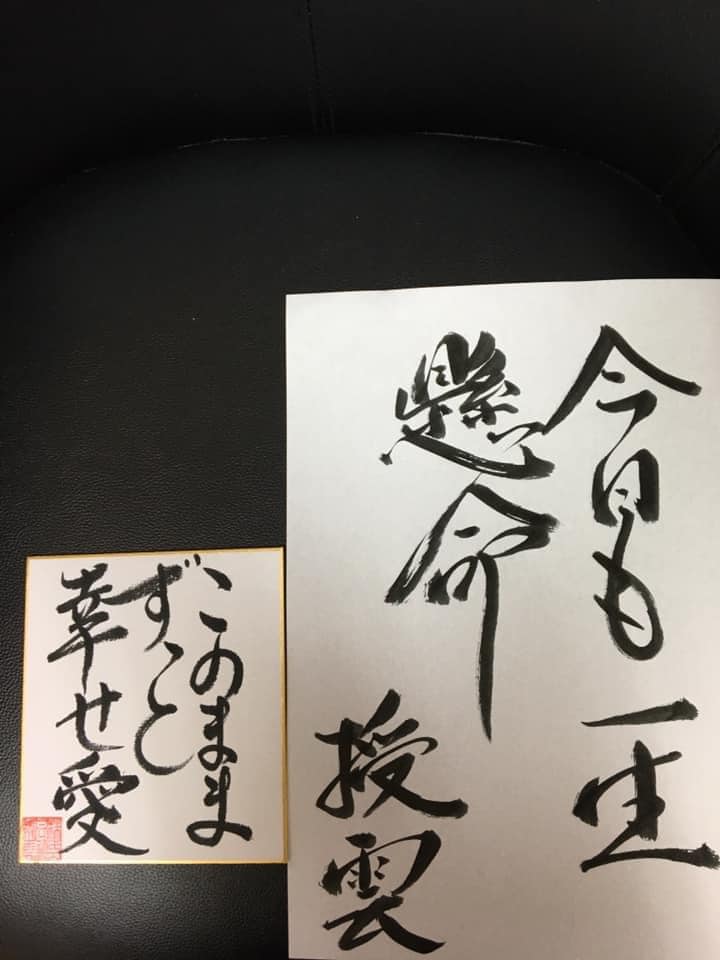 今日も一生
懸命
授雲
このまま
ずっと
幸せ愛